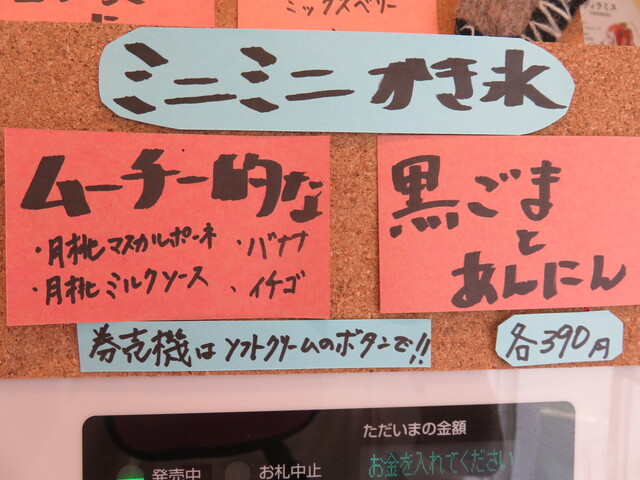 ミックスベリー
ティラミス
ミニミニ かき氷
ムーチー的な
・月桃マスカルポーネ ・バナナ
・月桃ミルクソース ・イチゴ
黒ごま
と
あんにん
券売機はソフトクリームのボタンで!!
各390円
ただいまの金額
お金を入れてください
発売中 お札中止